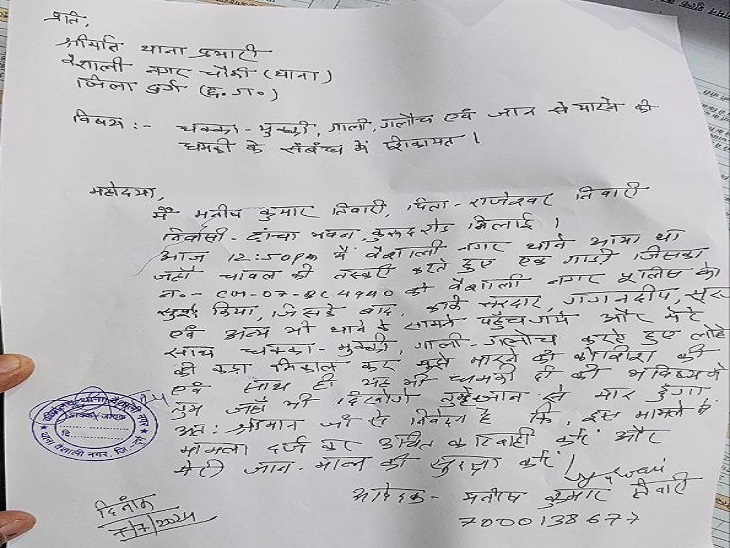 प्रति,
श्रीमति थाना प्रभारी
वैशाली नगर चौकी (थाना)
जिला दुर्ग (छ.ग.)
विषय:- धक्का-मुक्की, गाली, गलौच एवं जान से मारने की
धमकी के संबंध में शिकायत।
महोदया,
मैं मनीष कुमार तिवारी, पिता- राजेश्वर तिवारी
निवासी- ढांचा भवन कुरूद रोड भिलाई।
आज 12:50pm में वैशाली नगर थाने आया था
जहाँ चावल की तस्करी करते हुए एक गाडी जिसका
न.- CH-07-BC4940 को वैशाली नगर पुलिस को
सुपुर्द किया, जिसके बाद, काके गगनदीप,
एवं अन्य भी थाने के सामने पहुँच गये और मेरे
साथ धक्का-मुक्की, गाली-गलौच करते हुए लोहे
का कड़ा निकाल कर मुझे मारने की कोशिश की
एवं साथ ही यह भी धमकी दी की भविष्य में
तुम जहाँ भी दिखोगे तुम्हे जान से मार दुँगा
अतः श्रीमान जी से निवेदन है कि, इस मामले में
मामला दर्ज कर उचित कार्रवाही करें और
मेरी जान-माल की सुरक्षा करें
आवेदक- मनीष कुमार तिवारी
7000138677
दिनाँक
7/7/2024
थाना वैशाली नगर, जि.-दुर्ग